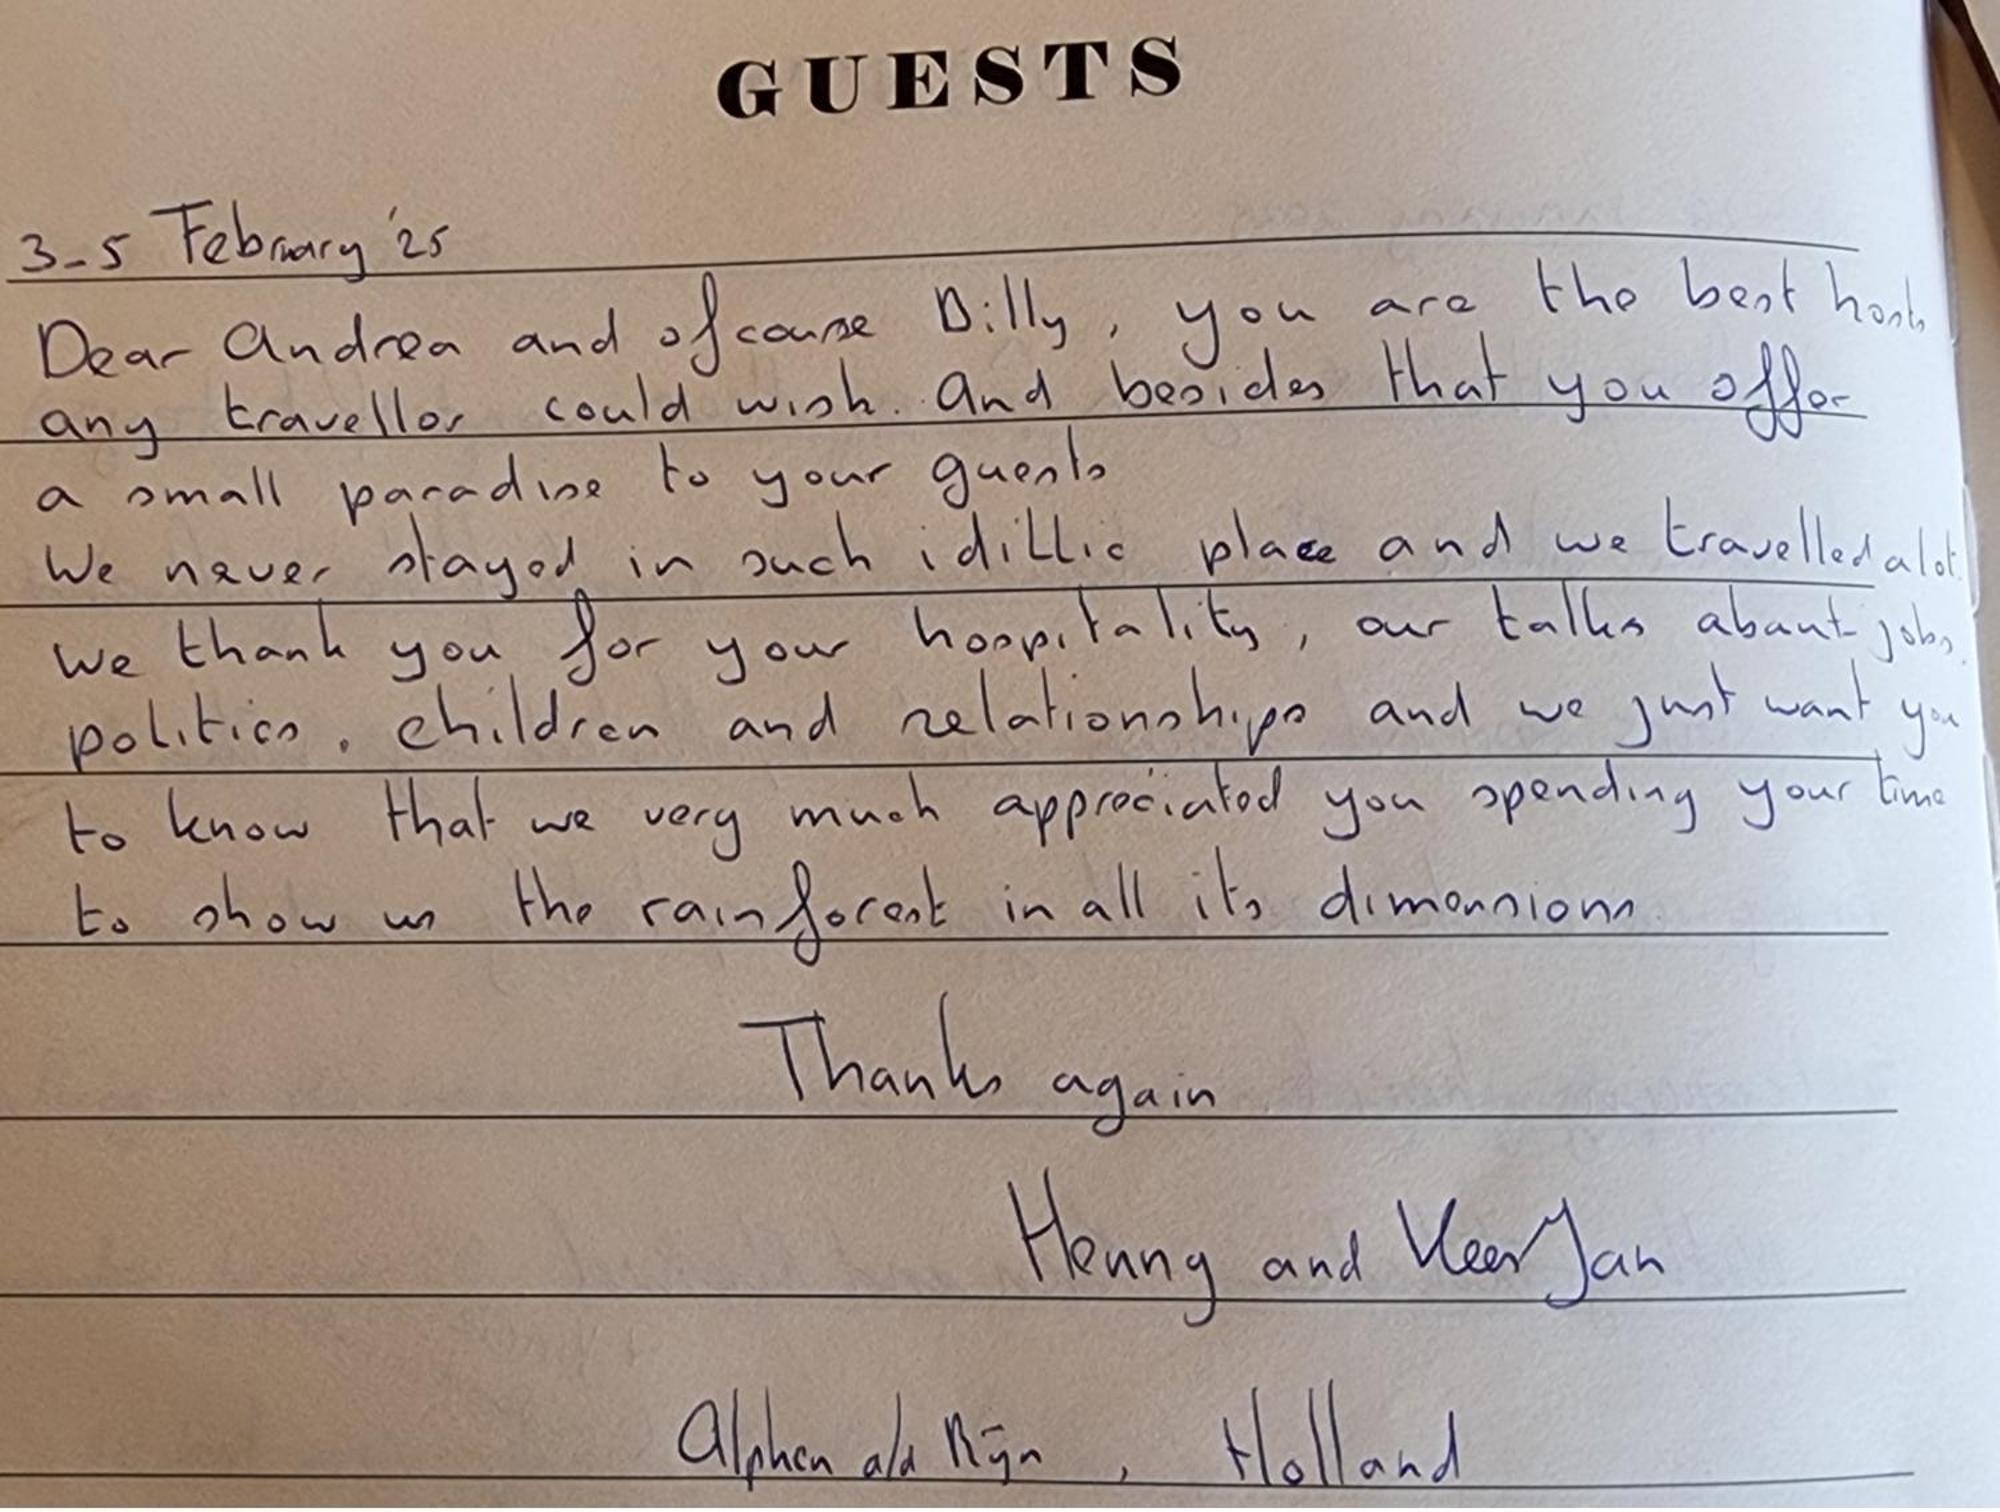 GUESTS
3-5 February '25
Dear Andrea and ofcourse Billy, you are the best hosts
any traveller could wish. And besides that you offer
a small paradise to your guests
We never stayed in such idillic place and we travelled a lot.
We thank you for your hospitality, our talks about jobs,
politics, children and relationships and we just want you
to know that we very much appreciated you spending your time
to show us the rainforest in all its dimensions.
Thanks again
Henny and Jan
Alphen a/d Rijn, Holland